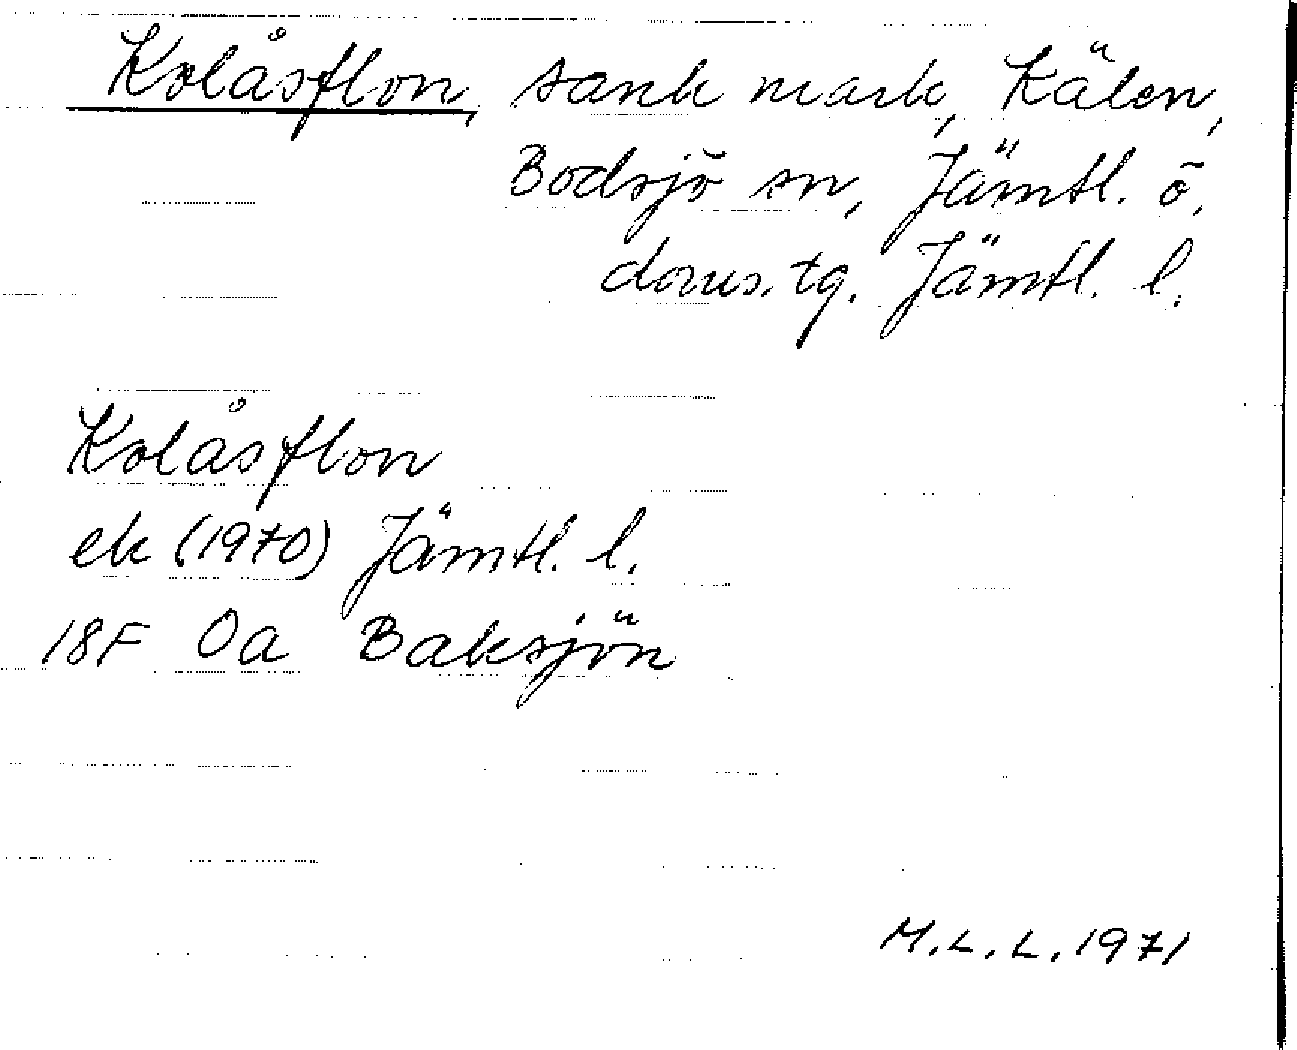 Kolåsflon, sank mark, Kälen,
Bodsjö sn, Jämtl. ö.
doms. tg. Jämtl. l.
Kolåsflon
ek (1970) Jämtl. l.
18F 0a Baksjön
M.L.L. 1971